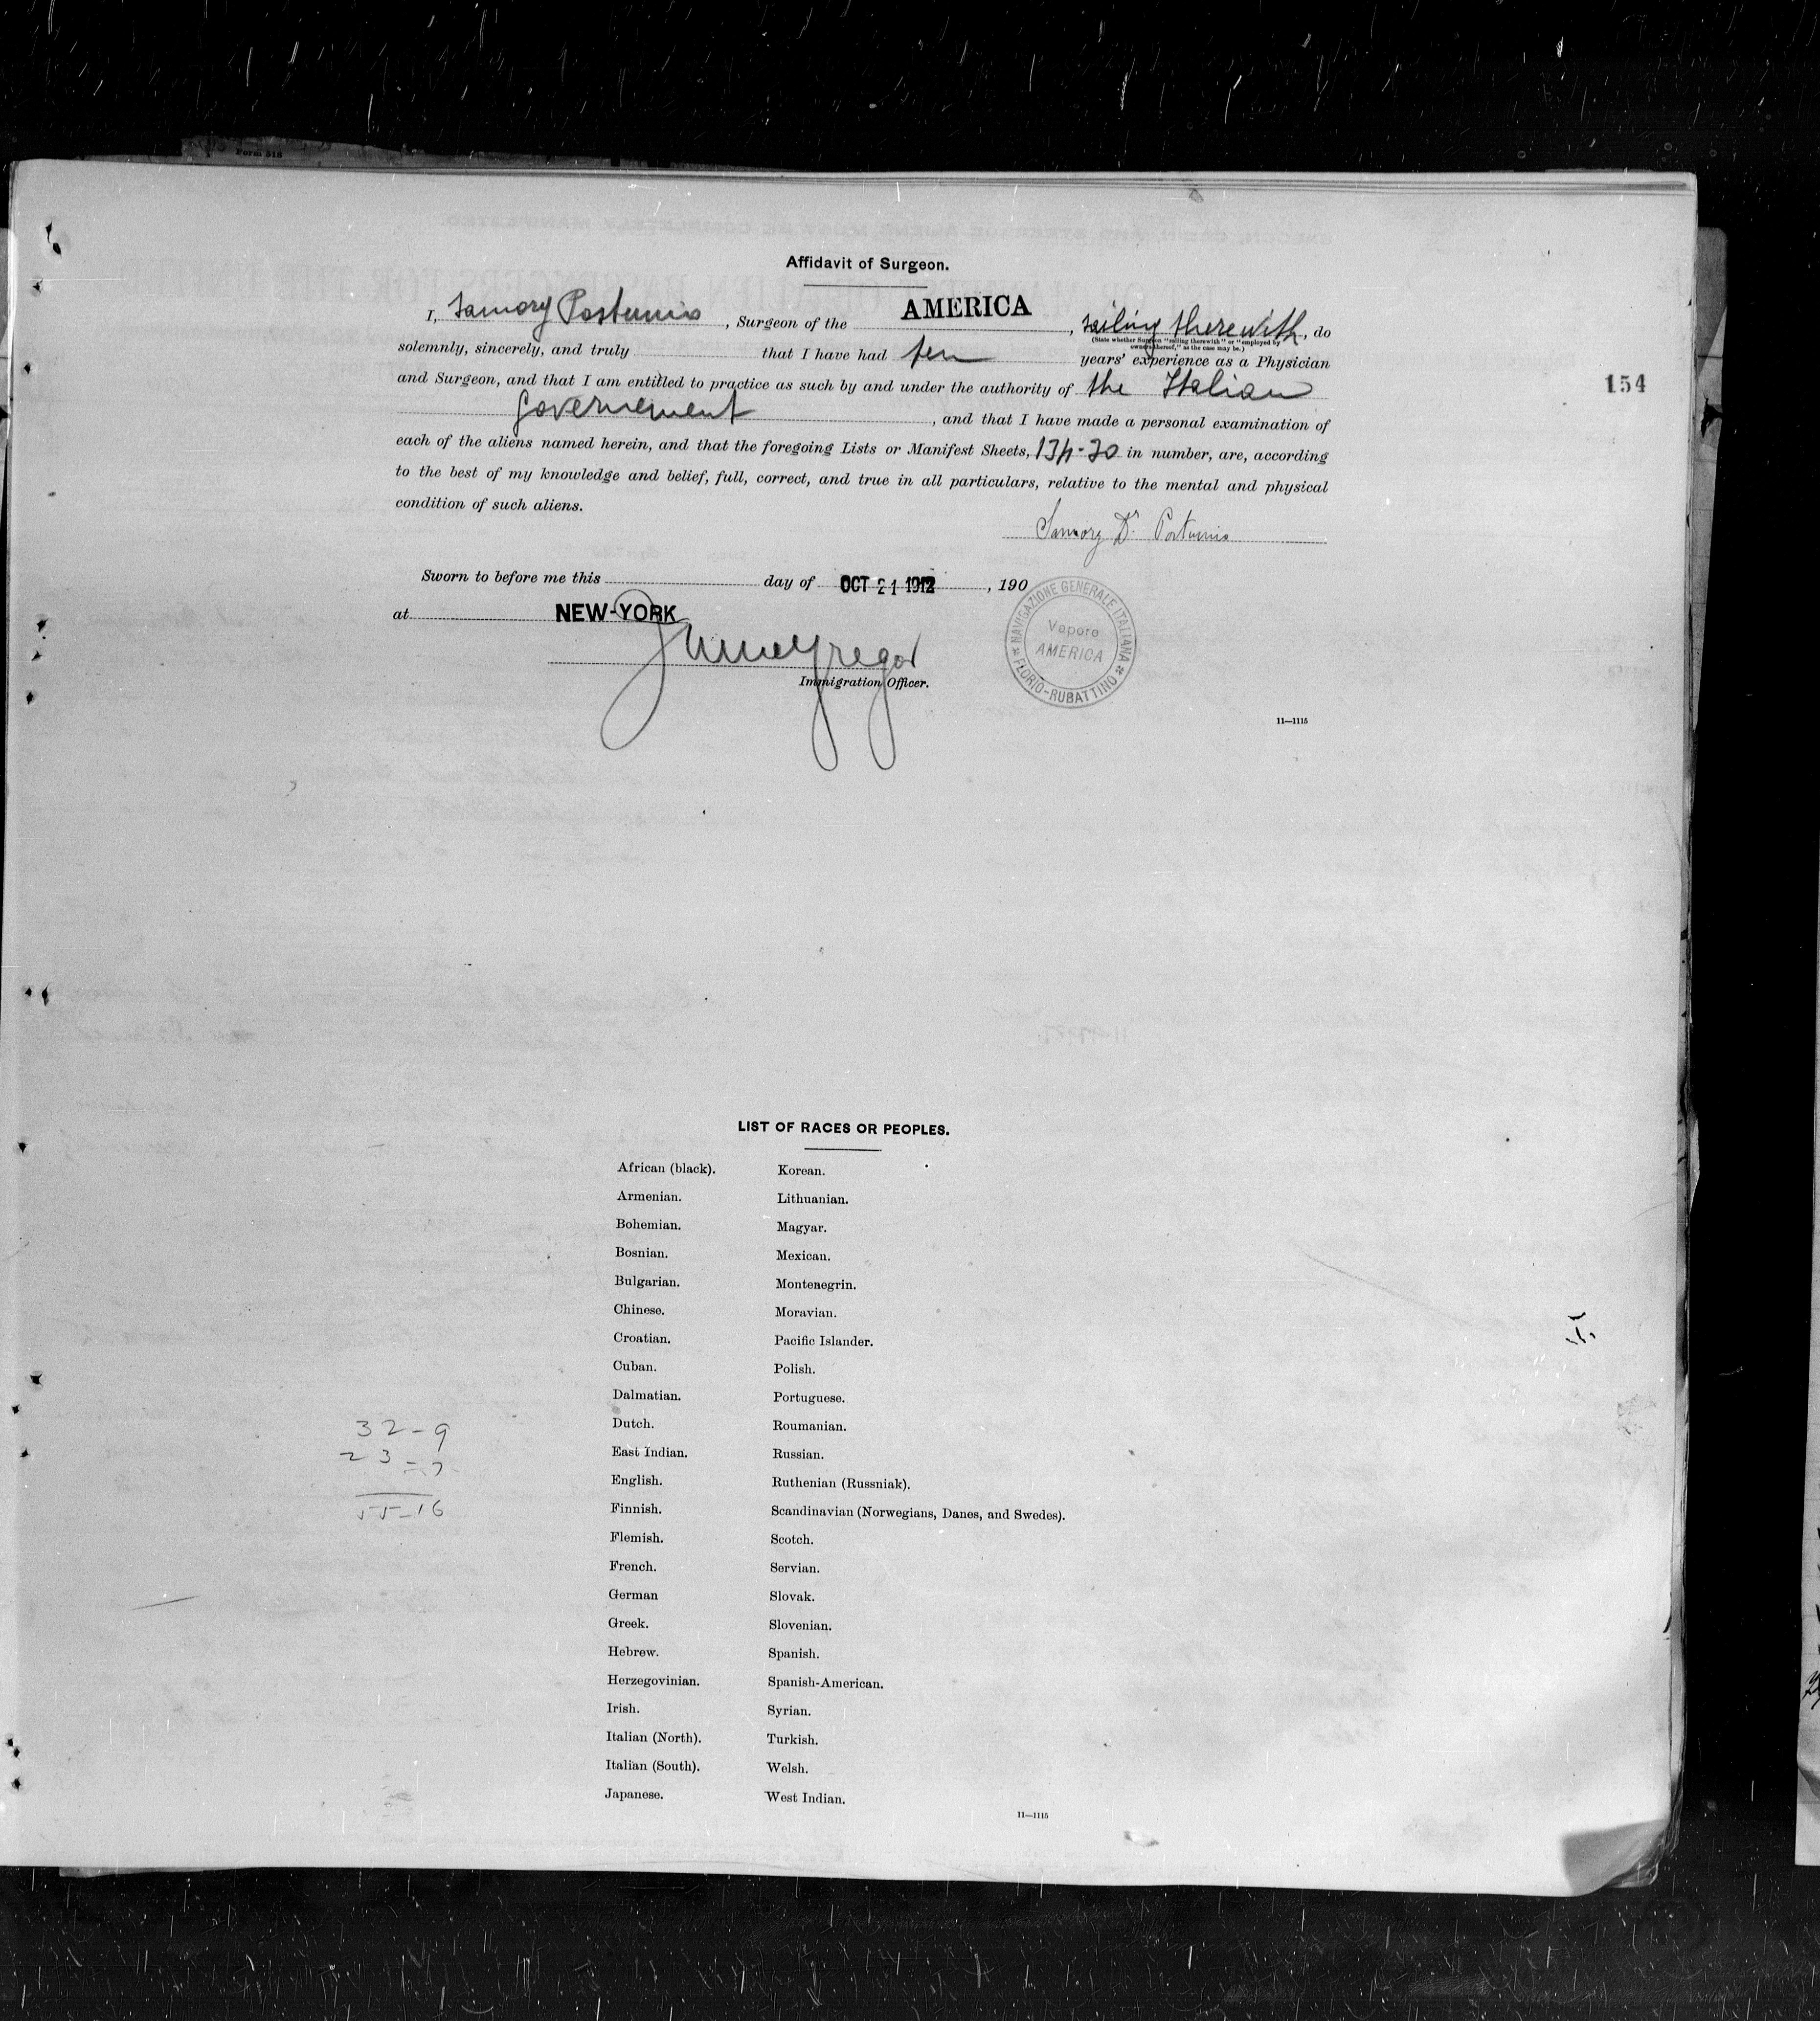 Form 518
Affidavit of Surgeon.
I, Samory Postumio, Surgeon of the AMERICA, sailing therewith, do
(State whether Surgeon "sailing therewith" or "employed by
owners thereof," as the case may be.)
solemnly, sincerely, and truly that I have had ten years' experience as a Physician
and Surgeon, and that I am entitled to practice as such by and under the authority of the Italian
Governement, and that I have made a personal examination of
154
each of the aliens named herein, and that the foregoing Lists or Manifest Sheets, in number, are, according
to the best of my knowledge and belief, full, correct, and true in all particulars, relative to the mental and physical
condition of such aliens.
Samory Dr Postumio
Sworn to before me this day of OCT 21 1912, 190
at NEW-YORK
Immigration Officer.
NAVIGAZIONE GENERALE ITALIANA
Vapore
AMERICA
FLORIO-RUBATTINO
11—1115
LIST OF RACES OR PEOPLES.
African (black). Korean.
Armenian. Lithuanian.
Bohemian. Magyar.
Bosnian. Mexican.
Bulgarian. Montenegrin.
Chinese. Moravian.
Croatian. Pacific Islander.
Cuban. Polish.
Dalmatian. Portuguese.
Dutch. Roumanian.
East Indian. Russian.
English. Ruthenian (Russniak).
Finnish. Scandinavian (Norwegians, Danes, and Swedes).
Flemish. Scotch.
French. Servian.
German Slovak.
Greek. Slovenian.
Hebrew. Spanish.
Herzegovinian. Spanish-American.
Irish. Syrian.
Italian (North). Turkish.
Italian (South). Welsh.
Japanese. West Indian.
11—1115
32-9
23-7
55-16